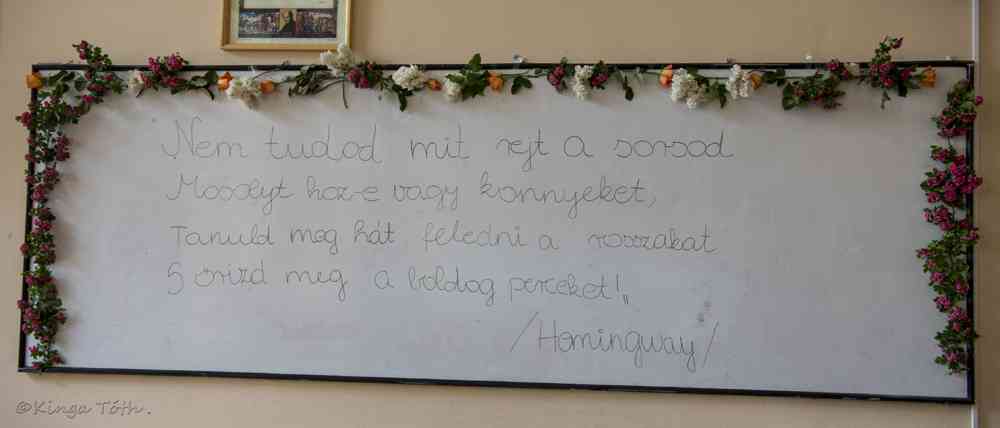 „Nem tudod mit rejt a sorsod
Mosolyt hoz-e vagy könnyeket,
Tanuld meg hát feledni a rosszakat
S őrizd meg a boldog perceket!„
/Homingway/
©Kinga Tóth.